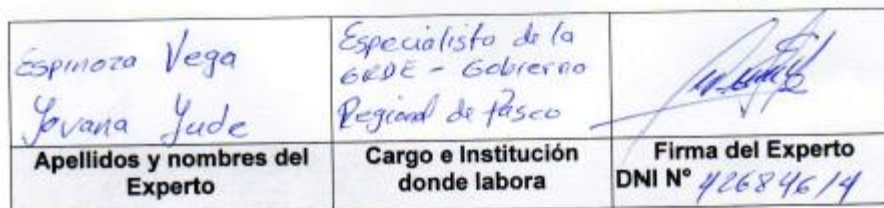 Espinoza Vega
Yovana Jude
Especialista de la
GRDE - Gobierno
Regional de Pasco
Apellidos y nombres del
Experto
Cargo e Institución
donde labora
Firma del Experto
DNI N° 42684614